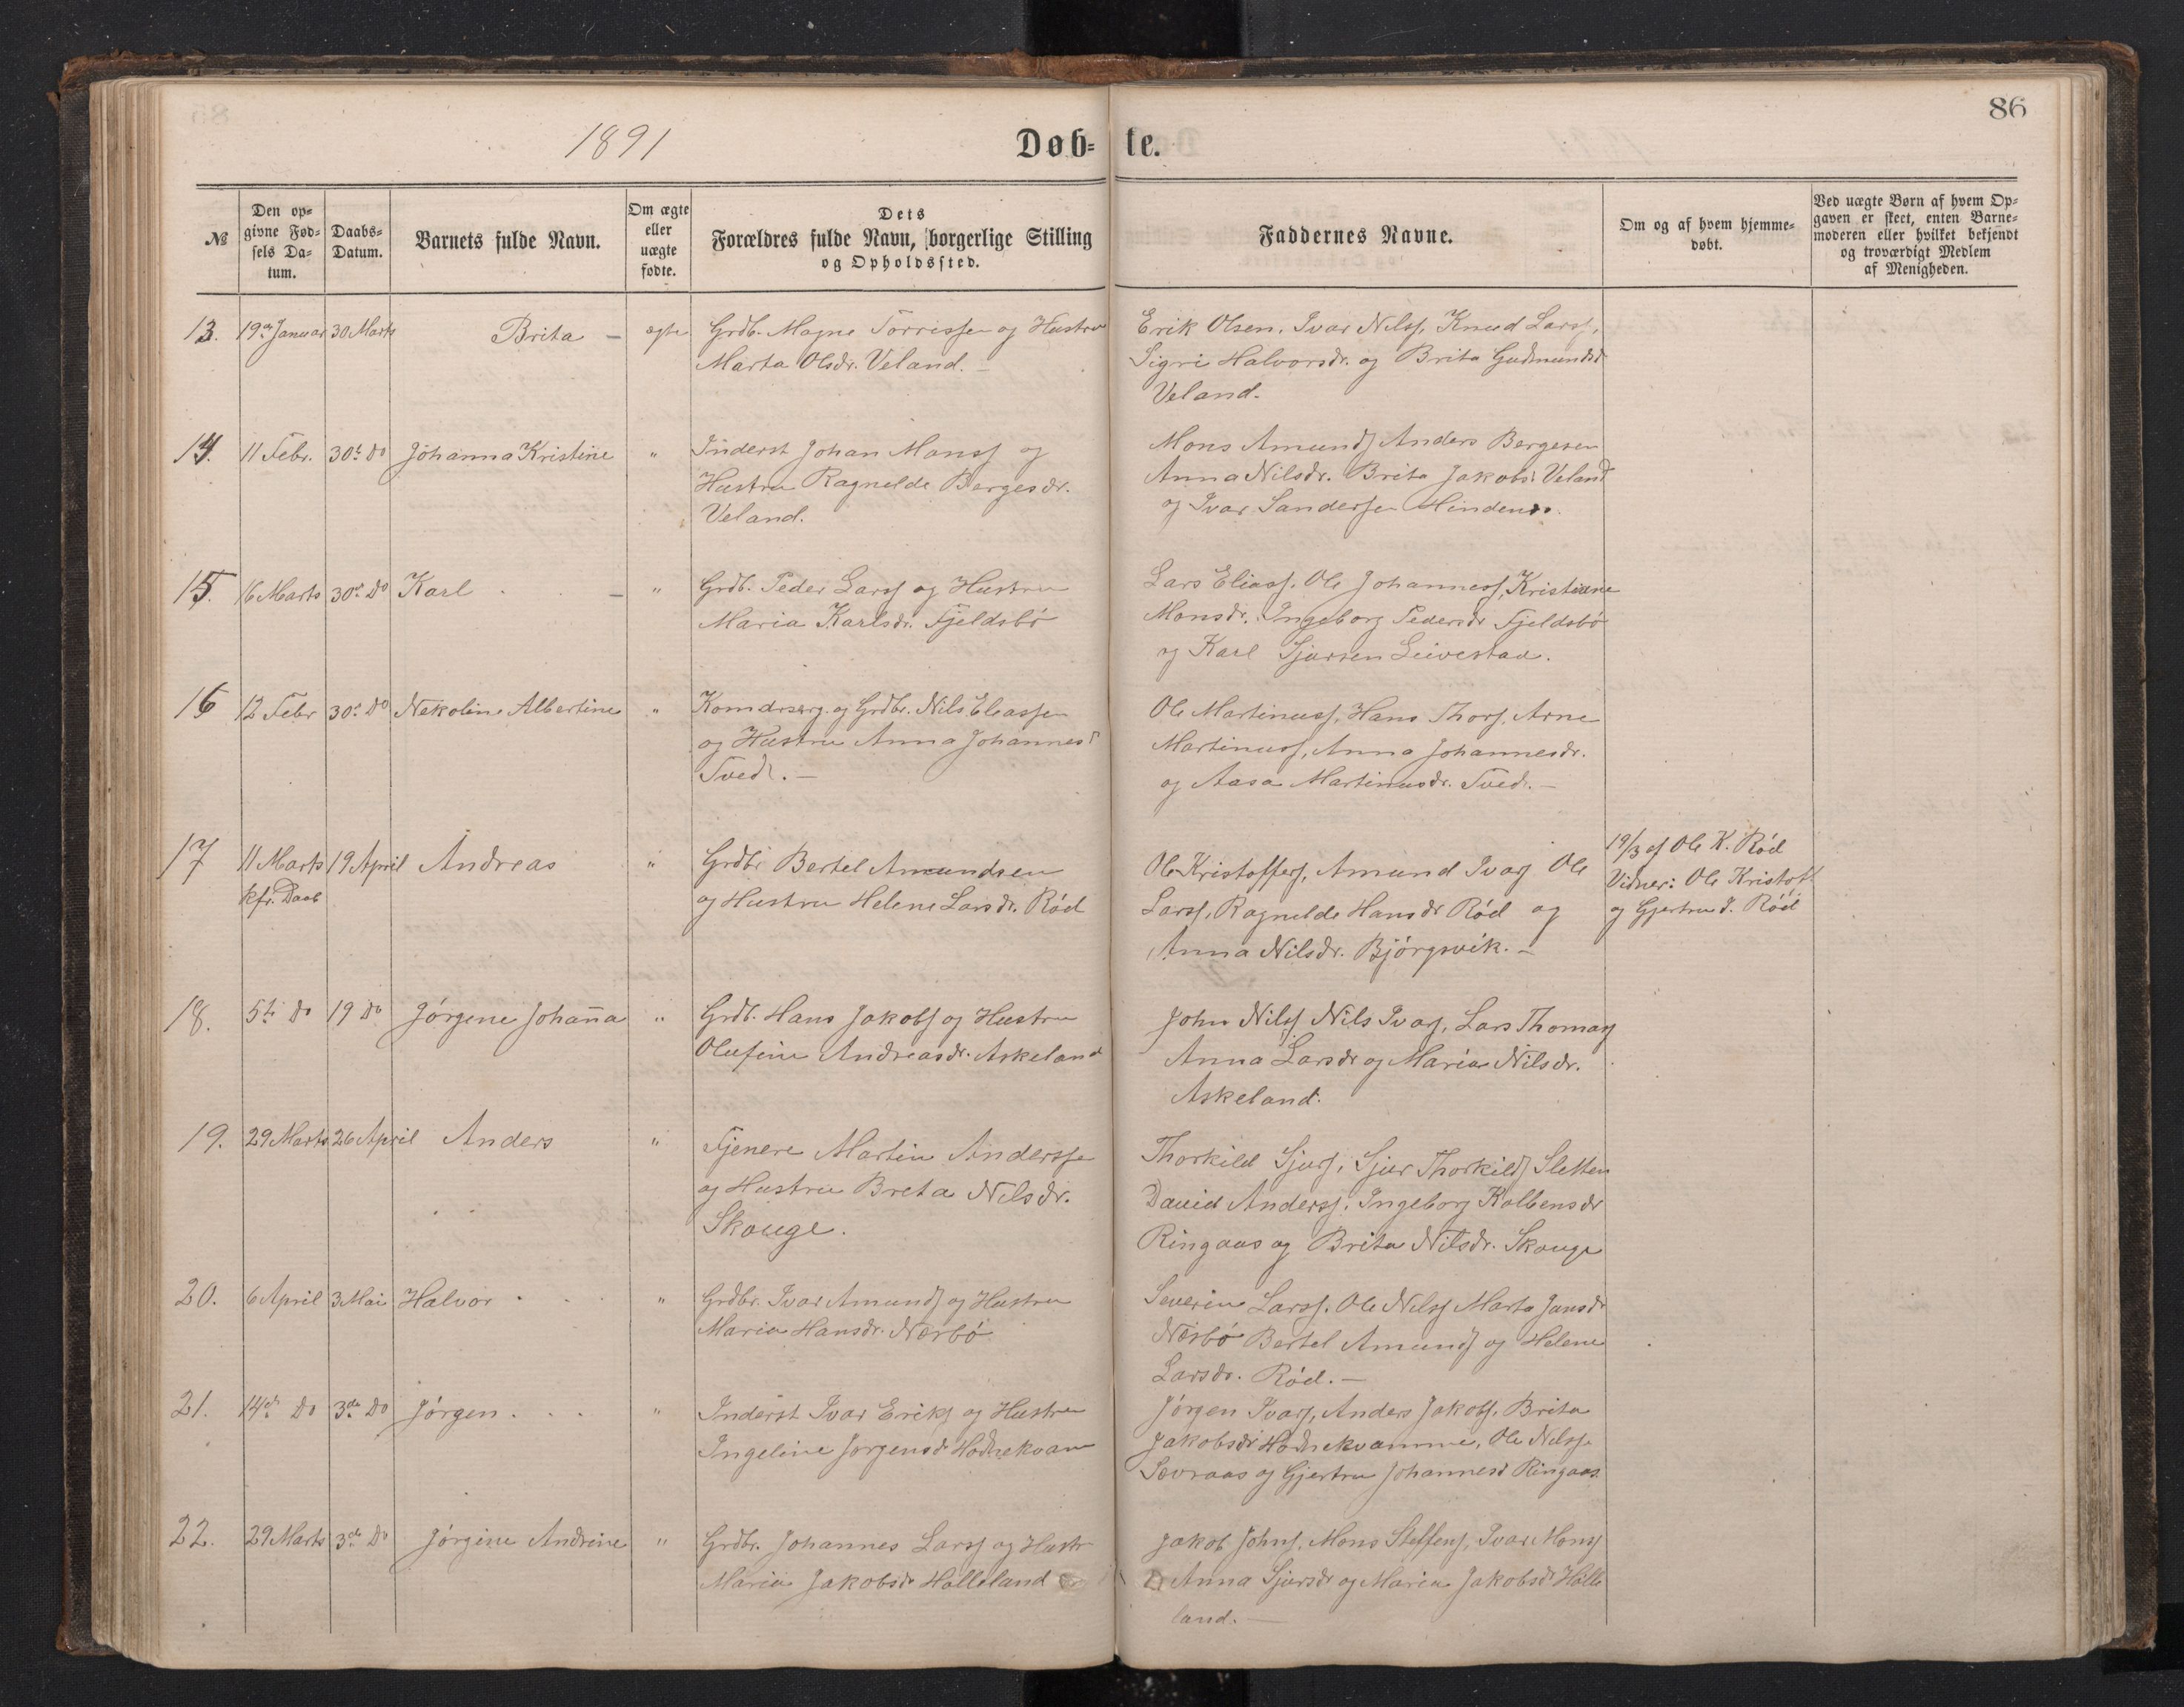 86
1891
Døb- te.
№
Den op-
givne Fød-
sels Da-
tum.
Daabs-
Datum.
Barnets fulde Navn.
Om ægte
eller
uægte
fødte.
Dets
Forældres fulde Navn, borgerlige Stilling
og Opholdssted.
Faddernes Navne.
Om og af hvem hjemme-
døbt.
Ved uægte Børn af hvem Op-
gaven er skeet, enten Barne-
moderen eller hvilket bekjendt
og troværdigt Medlem
af Menigheden.
13. 19de Januar 30 Marts Brita — ægte
Grdb. Magne Torrissen og Hustru
Marta Olsdr. Veland. —
Erik Olsen, Ivar Nilss, Knud Larss,
Sigri Halvorsdr. og Brita Gudmundsd
Veland.
14. 11 Febr. 30te Do Johanna Kristine "
Inderst Johan Monss og
Hustru Ragnelde Bergesdr.
Veland.
Mons Amunds Anders Bergesen
Anna Nilsdr. Brita Jakobsd Veland
og Ivar Sanderssen Hindenes.
15. 16 Marts 30te Do Karl — "
Grdb. Peder Larss og Hustru
Maria Karlsdr. Fjeldsbö
Lars Eliass. Ole Johanness, Kristiane
Monsdr. Ingeborg Pedersdr Fjeldsbö
og Karl Sjursen Leivestad.
16 12 Febr 30te Do Nekoline Albertine "
og Grdbr. Nils Eleassen
og Hustru Anna Johannesd
Tved. —
Ole Martinuss, Hans Thors, Arne
Martinuss, Anna Johannesdr.
og Aasa Martinusdr. Tved. —
17 11 Marts 19 April Andreas "
kfr. Daab
Grdbr Bertel Amundsen
og Hustru Helene Larsdr. Röd
Ole Kristoffers, Amund Ivars Ole
Larss, Ragnelde Hansdr Röd og
Anna Nilsdr. Björgsvik. —
19/3 af Ole K. Röd
Vidner: Ole Kristoff.
og Gjertru J. Röd
18. 5te Do 19 Do Jörgene Johanna "
Grdb. Hans Jakobs og Hustru
Olufine Andreasdr. Askeland
John Nilss Nils Ivars, Lars Thomass
Anna Larsdr og Maria Nilsdr.
Askeland.
19. 29 Marts 26 April Anders "
Tjenere Martin Anderssen
og Hustru Breta Nilsdr.
Skouge.
Thorkild Sjurs, Sjur Thorkilds Sletten
David Anderss, Ingeborg Kolbensdr
Ringaas og Brita Nilsdr. Skouge
20. 6 April 3 Mai Halvor "
Grdbr. Ivar Amunds og Hustru
Maria Hansdr. Nærbö
Severin Larss. Ole Nilss Marta Jansdr
Nærbö Bertel Amunds og Helene
Larsdr. Röd. —
21. 14de Do 3de Do Jörgen "
Inderst Ivar Eriks og Hustru
Ingeline Jørgensd Hodnekvam
Jörgen Ivars, Anders Jakobs, Brita
Jakobsdr Hodnekvamme, Ole Nilss
Sævraas og Gjertru Johannesd Ringaas
22. 29 Marts 3de Do Jörgine Andrine "
Grdbr. Johannes Larss og Hustr
Maria Jakobsdr Halleland
Jakob Johns. Mons Steffens, Ivar Monss
Anna Sjursdr og Maria Jakobsdr Halle
land. —